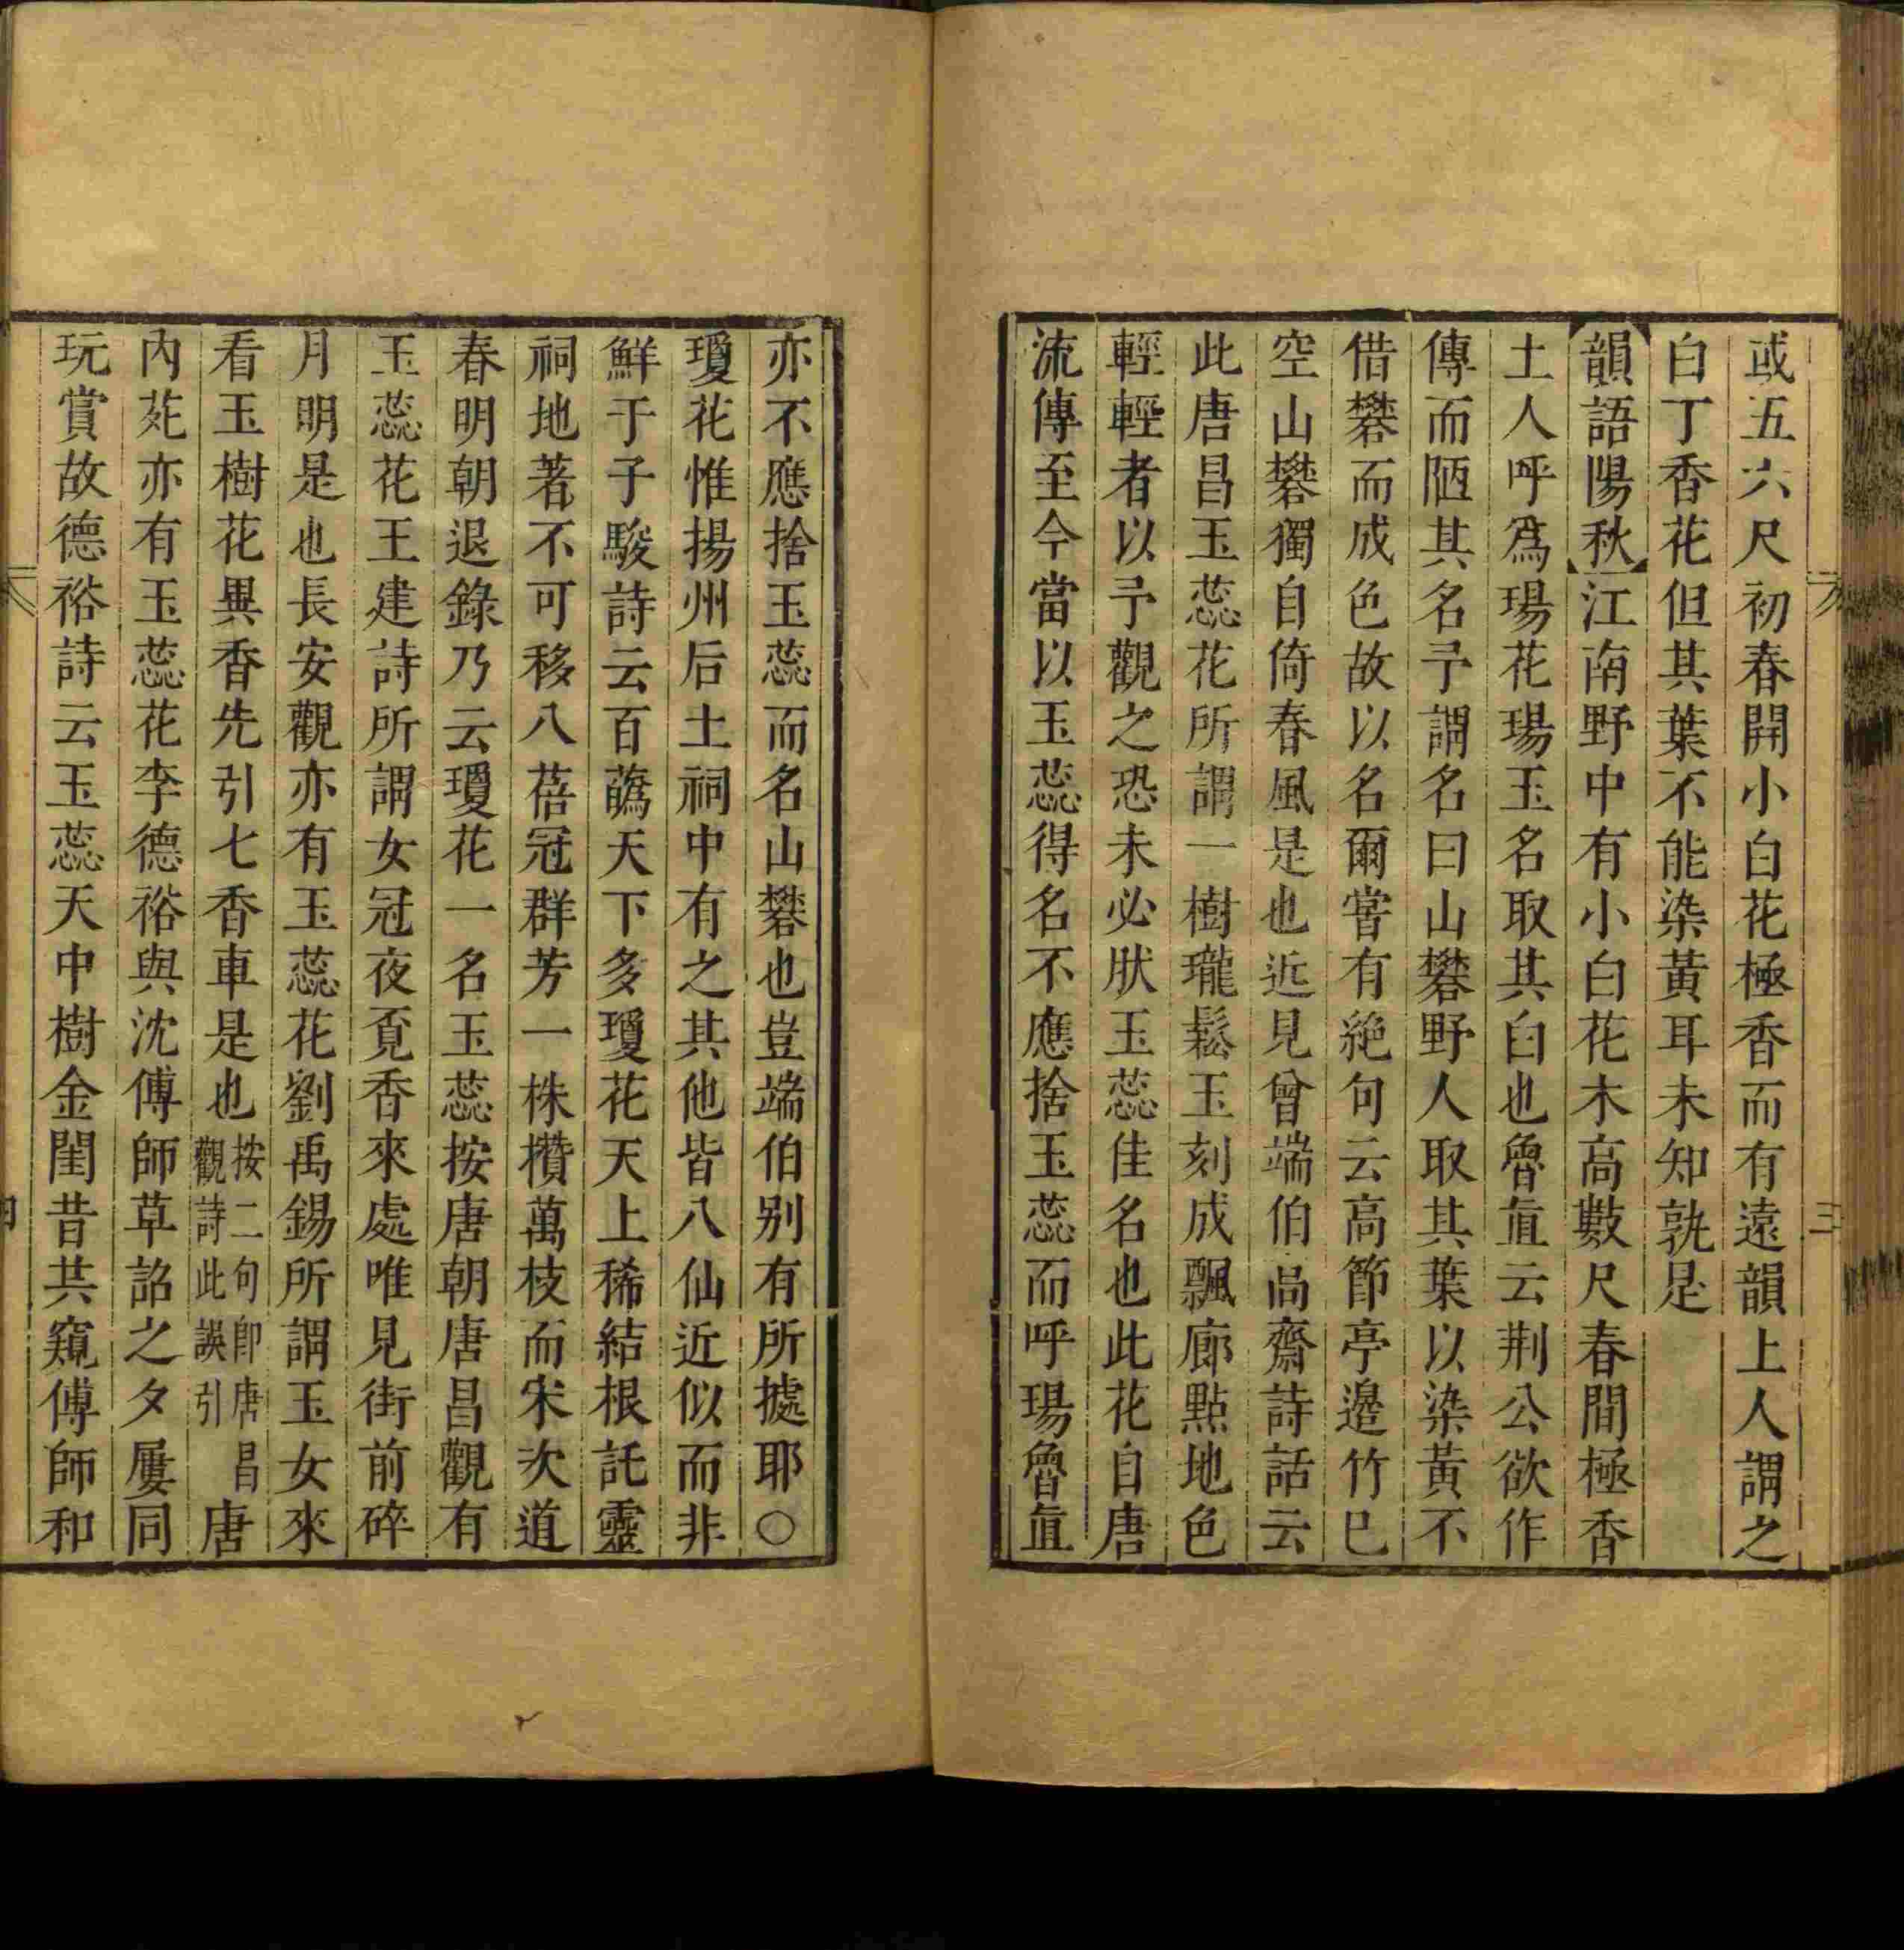 或五六尺初春開小白花極香而有遠韻上人謂之
白丁香花但其葉不能染黃耳未知孰是
韻語陽秋江南野中有小白花木高數尺春間極香
土人呼爲瑒花瑒玉名取其白也魯直云荆公欲作
傳而陋其名予謂名曰山礬野人取其葉以染黃不
借礬而成色故以名爾嘗有絶句云高節亭邉竹已
空山礬獨自倚春風是也近見曾端伯高齋詩話云
此唐昌玉蕊花所謂一樹瓏鬆玉刻成飄廊點地色
輕輕者以予觀之恐未必肰玉蕊佳名也此花自唐
流傳至今當以玉蕊得名不應捨玉蕊而呼瑒魯直
亦不應捨玉蕊而名山礬也豈端伯别有所㨿耶○
瓊花惟揚州后土祠中有之其他皆八仙近似而非
鮮于子駿詩云百蘤天下多瓊花天上稀結根託靈
祠地著不可移八蓓冠群芳一株攢萬枝而宋次道
春明朝退錄乃云瓊花一名玉蕊按唐朝唐昌觀有
玉蕊花王建詩所謂女冠夜覓香來處唯見街前碎
月明是也長安觀亦有玉蕊花劉禹錫所謂玉女來
看玉樹花異香先引七香車是也按二句卽唐昌觀詩此誤引唐
內苑亦有玉蕊花李德裕與沈傅師草詔之夕屢同
玩賞故德裕詩云玉蕊天中樹金閨昔共窺傅師和
三